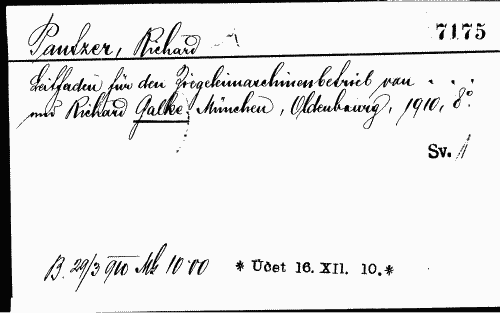 Pantzer, Richard 7175
Leitfaden für den Ziegeleimaschinenbetrieb von . . .
und Richard Galke, München, Oldenbourg, 1910, 8°.
Sv.
B. 29/3 910 Mk 10·00 * Üdet 16. XII. 10.*